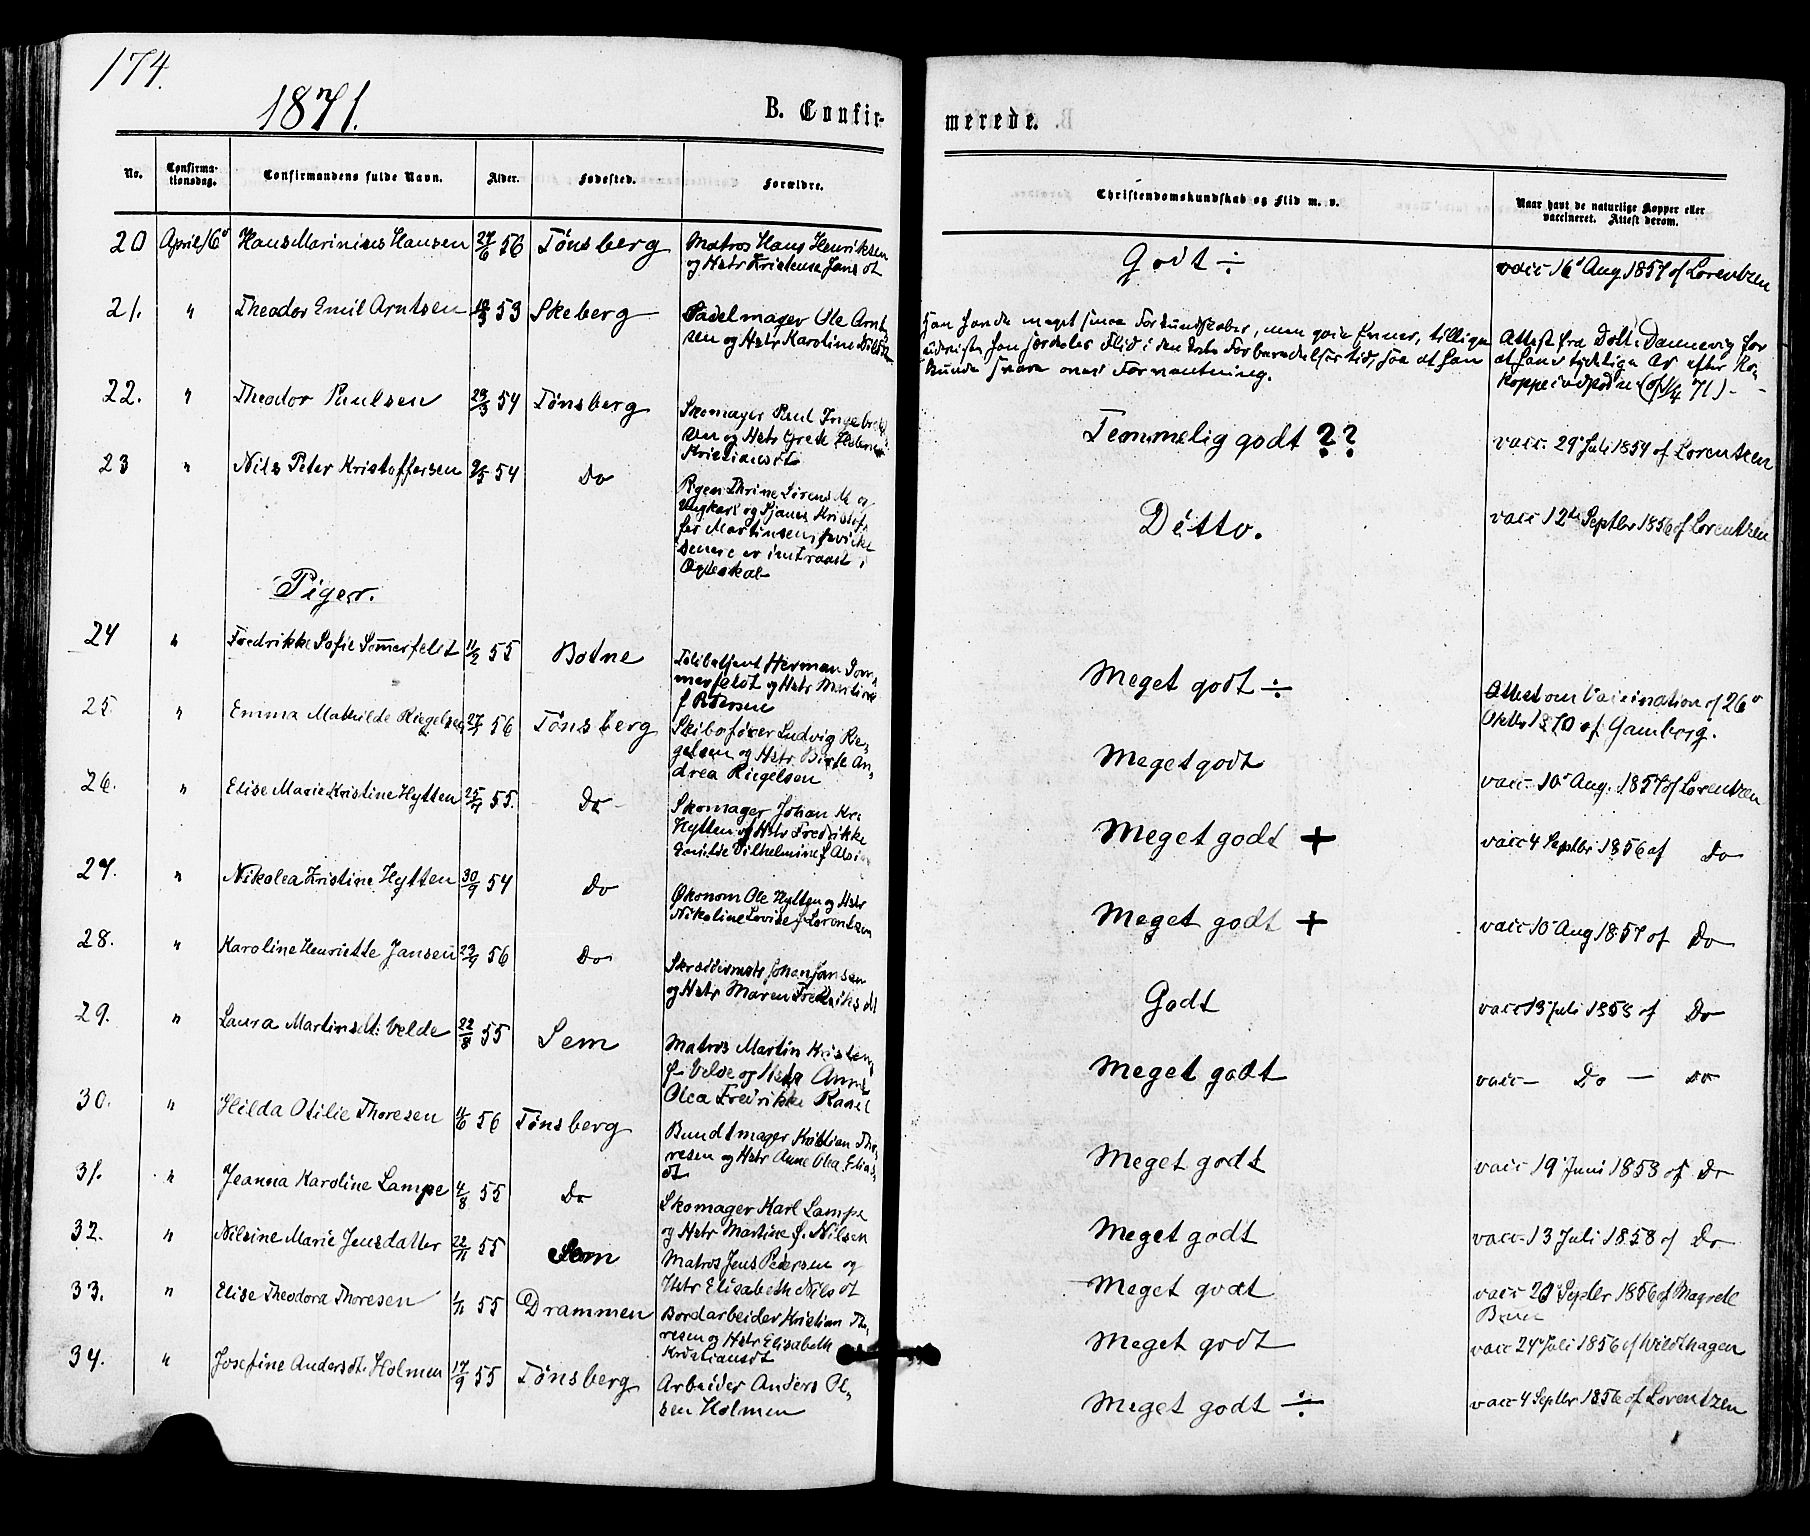 174.
1871.
B. Confir-
merede.
No.
Confirma-
tionsdag.
Confirmandens fulde Navn.
Alder.
Fødested.
Forældre.
Christendomskundskab og Flid m. v.
Naar havt de naturlige Kopper eller
vaccineret. Attest derom.
20 April 16d Hans Marinius Hansen 27/6 56 Tønsberg
Matros Hans Henriksen
og Hstr Kristense Jans dt
Godt ÷
vacc 16d Aug 1857 af Lorentzen
21. " Theodor Emil Arntsen 53 Skeberg
Sadelmager Ole Arnt-
sen og Hstr Karoline
Han havde meget smaa Forkundskaber, men gode Evner, tillige
udviste han særdeles Flid i den Forberedelsestid, saa at han
kunde svare over Forventning.
Attest fra Dannevig for
at have tydelige Ar efter
71)
22. " Theodor Paulsen 54 Tønsberg
Skomager Paul
sen og Hstr Grete
Kristiansdt
Temmelig godt ??
vacc. 29 Juli 1854 af Lorentzen
23 " Nils Peter Kristoffersen 54 Do
Pigen Thrine
Ungkarl og Kristof-
fer Martinsen, hvilke
senere er indtraadt i
Egteskab
Ditto.
vacc 12te Septbr 1856 af Lorentzen
Piger.
24 " Fredrikke Sofie Somerfelt 11/2 55 Botne
Toldbetjent Herman Som-
merfeldt og Hstr
f Petersen
Meget godt ÷
Attest om Vaccination af 26d
Oktbr 1870 af Gamborg.
25 " Emma Mathilde Riegelsen 56 Tønsberg
Skibsfører Ludvig Rie-
gelsen og Hstr. Birte An-
drea Riegelsen
Meget godt
vacc. 10d Aug. 1857 af Lorentzen
26. " Elise Marie Kristine Hytten 55. Do
Skomager Johan Kr.
Hytten og Hstr Fredrikke
Emilie Vilhelmine f
Meget godt +
vacc 4 Septbr 1856 af Do
27. " Nikolea Kristine Hytten 30/9 54 Do
Økonom Ole Hytten og Hstr
Nikoline Lovise f. Lorentsen
Meget godt +
vacc 10 Aug 1857 af Do
28. " Karoline Henriette Jansen 56 Do
Skræddermstr Johan Jansen
og Hstr Maren Fredriks dt
Godt
vacc 13 Juli 1858 af Do
29. " Laura Martinsdt: Velde 22/8 55 Sem
Matros Martin Kristen-
Velde og Hstr Anne
Olea Fredrikke
Meget godt
vacc — Do — Do
30. " Hilda Otilie Thoresen 56 Tønsberg
Bundtmager Kristian Tho-
resen og Hstr Anne Olea Elias-
dt
Meget godt
vacc 19 Juni 1858 af Do
31. " Jeanna Karoline Lampe 4/8 55 Do
Skomager Karl Lampe
og Hstr Martine f. Nilsen
Meget godt
vacc 13 Juli 1858 af Do
32. " Nilsine Marie Jensdatter 22/11 55 Sem
Matros Jens Pedersen og
Hstr Elisabeth Nils dt
Meget godt
vacc Septbr 1856 af
33. " Elise Theodora Thoresen 1/11 55 Drammen
Bordarbeider Kristian Tho-
resen og Hstr Elisabeth
Kristiansdt
Meget godt
vacc 24 Juli 1856 af Wildthagen
34. " Josefine Andersdt. Holmen 17/9 55 Tønsberg
Arbeider Anders Ol-
sen Holmen
Meget godt ÷
vacc 4 Septbr 1856 af Lorentzen